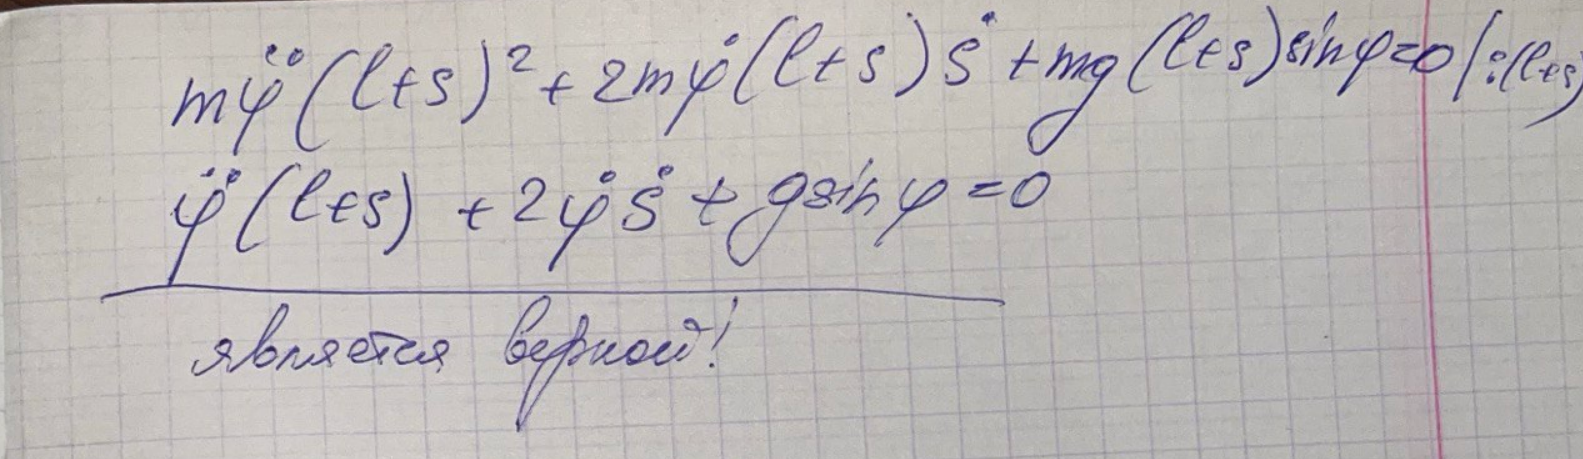 mφ̈(l+s)² + 2mφ̇(l+s)ṡ + mg(l+s)sinφ=0 |:(l+s)
φ̈(l+s) + 2φ̇ṡ + gsinφ=0
является верной!